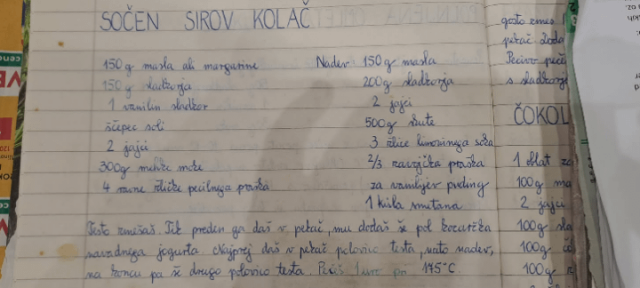 SOČEN SIROV KOLAČ
150g masla ali margarine
150g sladkorja
1 vanilin sladkor
ščepec soli
2 jajci
300g mehke moke
4 ravne žličke pecilnega praška
Nadev: 150g masla
200g sladkorja
2 jajci
500g skute
3 žlice limoninega soka
2/3 zavojčka praška
za vanilijev puding
1 kisla smetana
Testo zmešaš. Tik preden ga daš v pekač, mu dodaš še pol kozarčka
navadnega jogurta. Najprej daš v pekač polovico testa, nato nadev,
na koncu pa še drugo polovico testa. Pečeš 1 uro pri 175°C.
gosto zmes
pekač
Pecivo peče
s sladkorje
ČOKOL
1
100g ma
2 jajci
100g sla
100g
100g